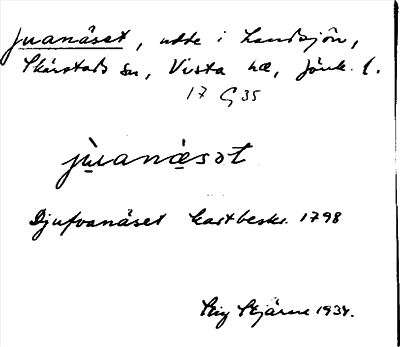 Juanäset, udde i Landsjön,
Skärstads sn, Vista hd, Jönk. l.
17 G 35
jùanä́sət
Djufvanäset kartbeskr. 1798
Stig Stjärne 1934.